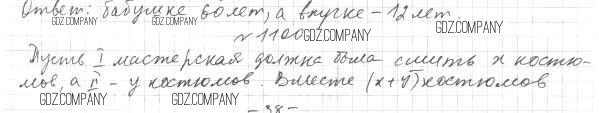 Ответ: бабушке 60 лет, а внучке - 12 лет.
GDZ.COMPANY GDZ.COMPANY GDZ.COMPANY
№1100 GDZ.COMPANY
Пусть I мастерская должна была сшить x костю-
мов, а II - y костюмов. Вместе (x+y) костюмов
GDZ.COMPANY GDZ.COMPANY GDZ.COMPANY
- 38 -